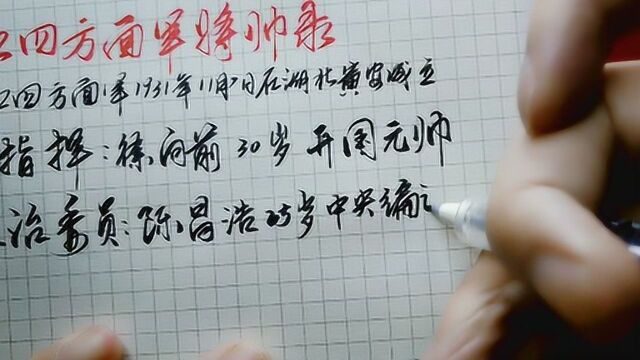 红四方面军将帅录
红四方面军1931年11月7日在湖北黄安成立
指挥:徐向前30岁开国元帅
政治委员:陈昌浩25岁中央编